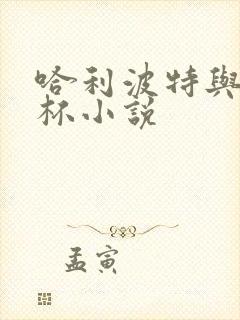 哈利波特與
杯小説
孟寅